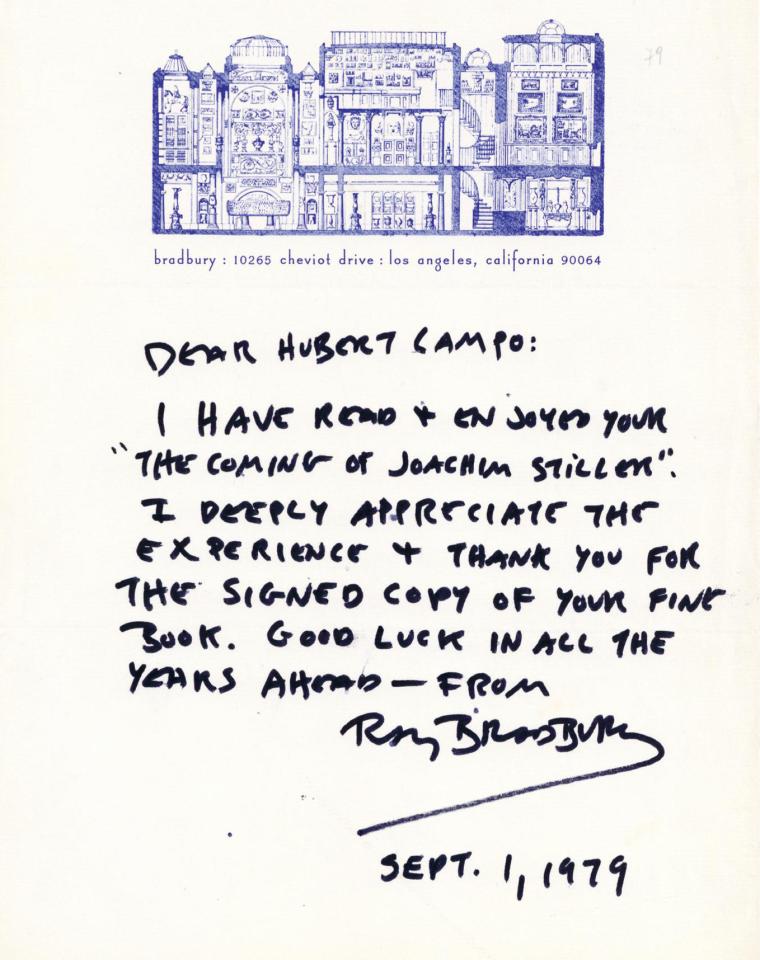 79
bradbury : 10265 cheviot drive : los angeles, california 90064
DEAR HUBERT CAMPO:
I HAVE READ + ENJOYED YOUR
"THE COMING OF JOACHIM STILLER".
I DEEPLY APPRECIATE THE
EXPERIENCE + THANK YOU FOR
THE SIGNED COPY OF YOUR FINE
BOOK. GOOD LUCK IN ALL THE
YEARS AHEAD — FROM
RAY BRADBURY
SEPT. 1, 1979